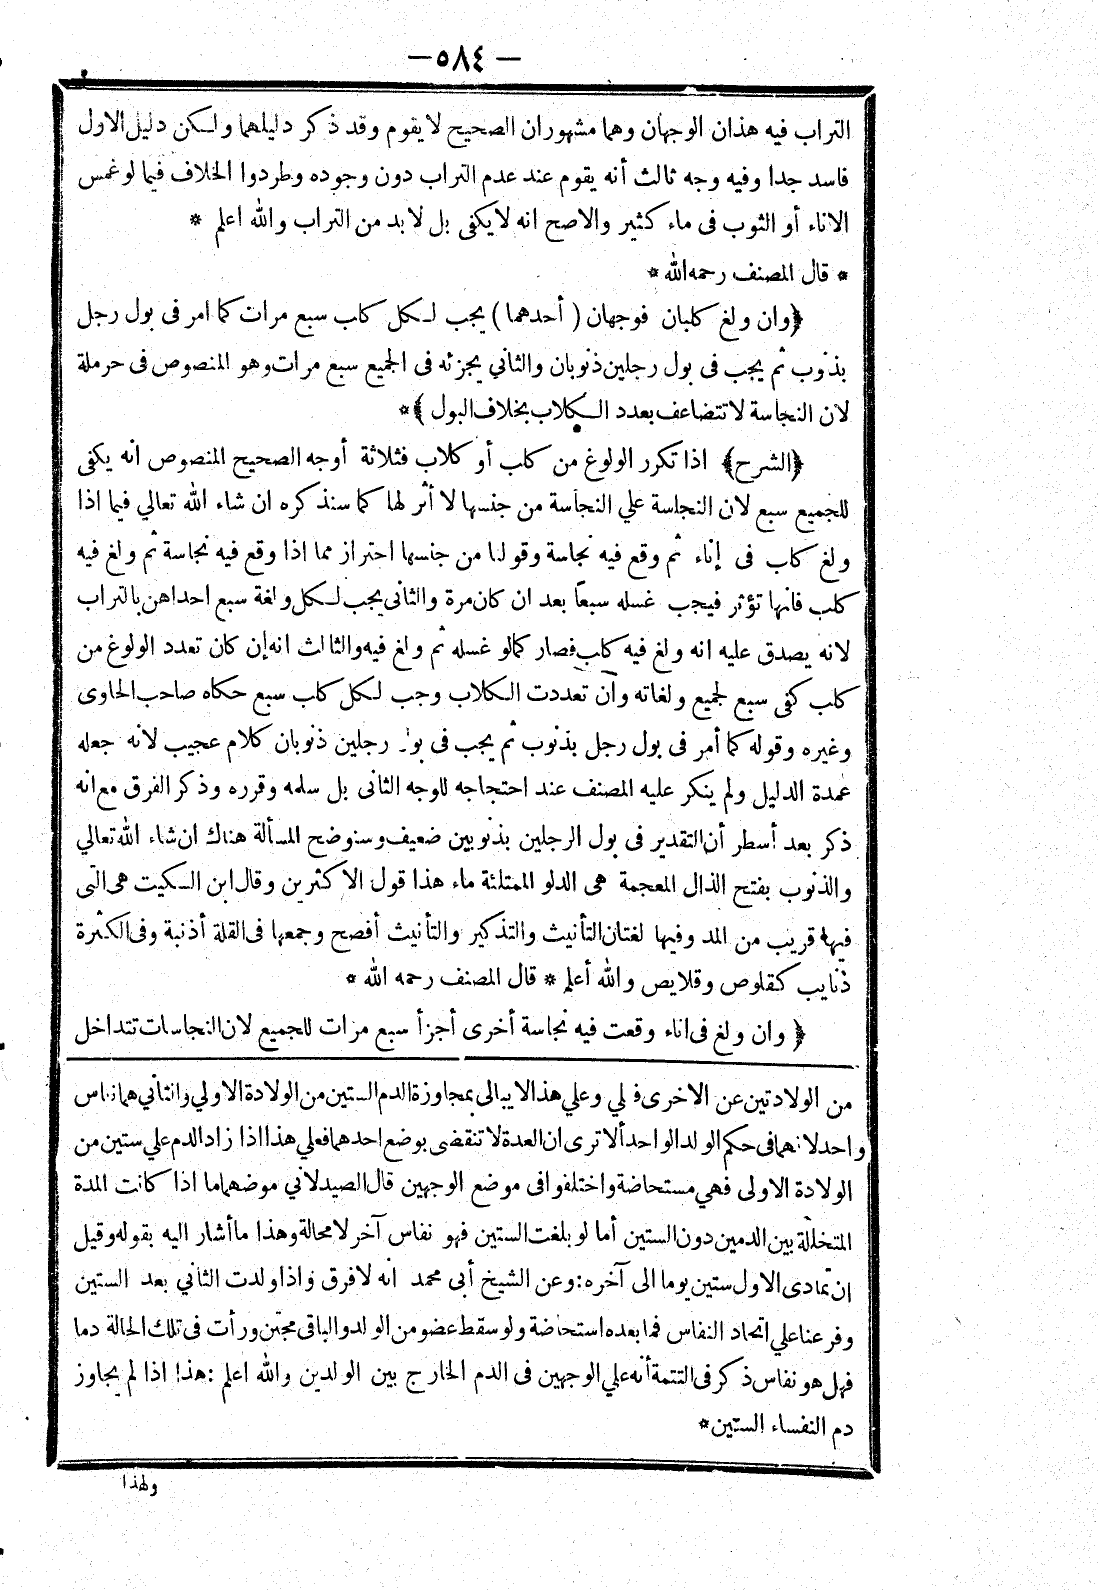 — ٥٨٤ —
التراب فيه هذان الوجهان وهما مشهوران الصحيح لا يقوم وقد ذكر دليلهما ولكن دليل الاول
فاسد جدا وفيه وجه ثالث أنه يقوم عند عدم التراب دون وجوده وطردوا الخلاف فيما لو غمس
الاناء أو الثوب فى ماء كثير والاصح انه لا يكفى بل لا بد من التراب والله اعلم *
* قال المصنف رحمه الله *
﴿وان ولغ كلبان فوجهان ( أحدهما ) يجب لكل كلب سبع مرات كما امر فى بول رجل
بذنوب ثم يجب فى بول رجلين ذنوبان والثاني يجزئه فى الجميع سبع مرات وهو المنصوص فى حرملة
لان النجاسة لا تتضاعف بعدد الكلاب بخلاف البول ﴾*
﴿الشرح﴾ اذا تكرر الولوغ من كلب أو كلاب فثلاثة أوجه الصحيح المنصوص انه يكفى
للجميع سبع لان النجاسة علي النجاسة من جنسها لا أثر لها كما سنذكره ان شاء الله تعالي فيما اذا
ولغ كلب فى إناء ثم وقع فيه نجاسة وقولنا من جنسها احتراز مما اذا وقع فيه نجاسة ثم ولغ فيه
كلب فانها تؤثر فيجب غسله سبعًا بعد ان كان مرة والثانى يجب لكل ولغة سبع احداهن بالتراب
لانه يصدق عليه انه ولغ فيه كلب فصار كما لو غسله ثم ولغ فيه والثالث انه إن كان تعدد الولوغ من
كلب كفى سبع لجميع ولغاته وان تعددت الكلاب وجب لكل كلب سبع حكاه صاحب الحاوى
وغيره وقوله كما أمر فى بول رجل بذنوب ثم يجب فى بول رجلين ذنوبان كلام عجيب لانه جعله
عمدة الدليل ولم ينكر عليه المصنف عند احتجاجه للوجه الثانى بل سلمه وقرره وذكر الفرق مع انه
ذكر بعد أسطر أن التقدير فى بول الرجلين بذنوبين ضعيف وسنوضح المسألة هناك ان شاء الله تعالي
والذنوب بفتح الذال المعجمة هى الدلو الممتلئة ماء هذا قول الاكثرين وقال ابن السكيت هى التى
فيها قريب من الملء وفيها لغتان التأنيث والتذكير والتأنيث أفصح وجمعها فى القلة أذنبة وفى الكثرة
ذنايب كقلوص وقلايص والله أعلم * قال المصنف رحمه الله *
﴿ وان ولغ فى اناء وقعت فيه نجاسة أخرى أجزأ سبع مرات للجميع لان النجاسات تتداخل
من الولادتين عن الاخرى وعلي هذا لا يبالى بمجاوزة الدم الستين من الولادة الاولي والثاني هما نفاس
واحد لانهما فى حكم الولد الواحد ألا ترى ان العدة لا تنقضى بوضع احدهما فعلي هذا اذا زاد الدم علي ستين من
الولادة الاولى فهي مستحاضة واختلفوا فى موضع الوجهين قال الصيدلاني موضهما ما اذا كانت المدة
المتخللة بين الدمين دون الستين أما لو بلغت الستين فهو نفاس آخر لا محالة وهذا ما أشار اليه بقوله وقيل
ان تمادى الاول ستين يوما الى آخره : وعن الشيخ أبى محمد انه لا فرق واذا ولدت الثاني بعد الستين
وفرعنا علي اتحاد النفاس فما بعده استحاضة ولو سقط عضو من الولد والباقى مجتن ورأت فى تلك الحالة دما
فهل هو نفاس ذكر فى التتمة أنه علي الوجهين فى الدم الخارج بين الولدين والله اعلم : هذا اذا لم يجاوز
دم النفساء الستين *
ولهذا